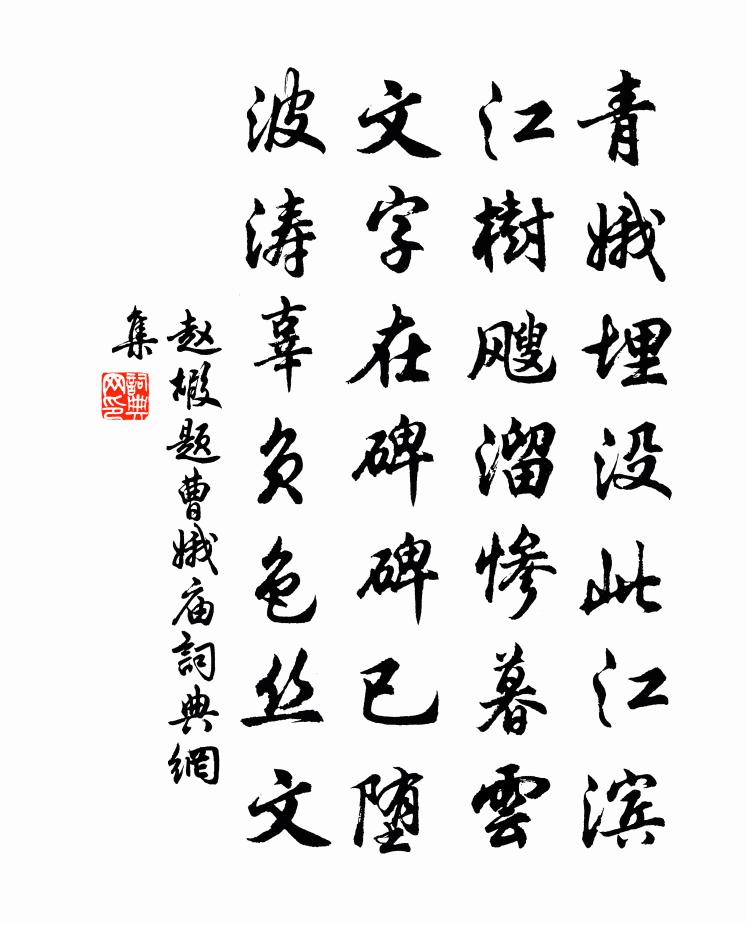 青娥埋没此江滨
江樹飕溜惨暮雲
文字在碑碑已堕
波涛辜负色丝文
赵嘏题曹娥庙詞典網
集
詞典
网印